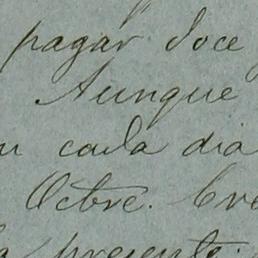 pagar doce
Aunque
cada dia
Octbre. Cre
presente.